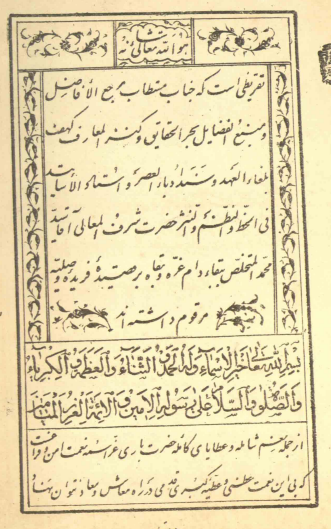 هو الله تعالی شأنه
تقریظی است که جناب مستطاب مرجع الأفاضل
و منبع الفضایل بحر الحقایق و کنز المعارف کهف
العهد و سناد العصر و استاد الأساتید
فی الخط و النظم و النثر حضرت شرف المعالی آقا سید
محمد المتخلص ببقاء دام عزه و بقاه بر قصیدهٔ فریده
مرقوم داشته اند
بسم الله خیر الأسماء و له الحمد و الثناء و العظمة و الکبریاء
و الصلوة و السلام علی رسوله الأمین و الأئمة
از جمله نعم شامله و عطایای کامله حضرت باری عز اسمه نعمت امن و
که بی این نعمت عظمی و عطیه کبری قدمی در راه معاش و معاد نتوان نهاد